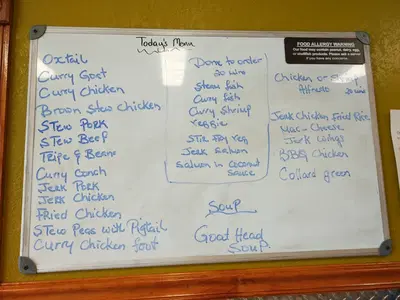 Today's Menu
Oxtail
Curry Goet
Curry Chicken
Brown Stew Chicken
STew Pork
STew Beef
Tripe & Beans
Curry Conch
Jerk Pork
Jerk Chicken
Fried Chicken
STew Peas with Pigtail
Curry Chicken foot
Done to order
20 MIN
Steam fish
Curry fish
Curry Shrimp
veggie
STir Fry veg
Jerk Salmon
Salmon in Coconut
Sauce
Soup
Good Head
Soup.
FOOD ALLERGY WARNING
Our food may contain peanut, dairy, egg,
or shellfish products. Please ask a server
if you have any concerns.
Chicken or Shrimp
Alfredo 20 MIN
Jerk Chicken Fried Rice
Mac-Cheese
Jerk Wings
BBQ Chicken
Collard green